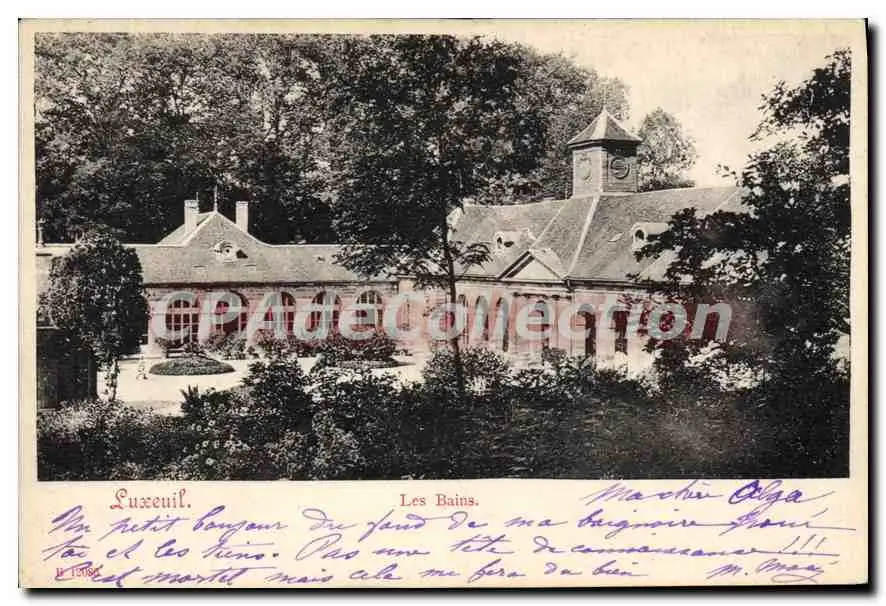 CPADECollection
Luxeuil. Les Bains. Ma chère Olga
Un petit bonjour du fond de ma baignoire pour
toi et les tiens. Pas une tête de connaissance !!!
B 12086 C'est mortel mais cela me fera du bien M.